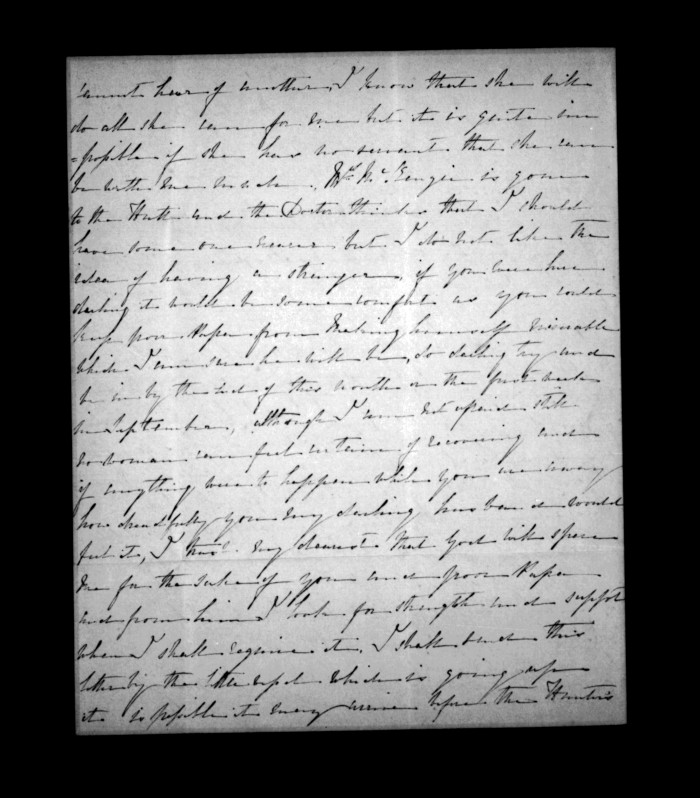 cannot hear of another, I know that she will
do all she can for me but it is quite im
=possible if she has no servant that she can
be with me much. Mrs McKenzie is gone
to the Hutt and the Doctor thinks that I should
have some one nearer but I do not like the
idea of having a stranger, if you were here
darling it would be some comfort as you could
keep poor Papa from making himself miserable
which I am sure he will be, so darling try and
be in by the end of this month or the first week
in September, although I am not afraid still
no woman can feel certain of recovering and
if anything were to happen while you are away
how dreadfully you my darling husband would
feel it, I trust my dearest that God will spare
me for the sake of you and poor Papa
and from him I look for strength and support
when I shall require it. I shall send this
letter by the little vessel which is going up
it is possible it may arrive before the Hunter's